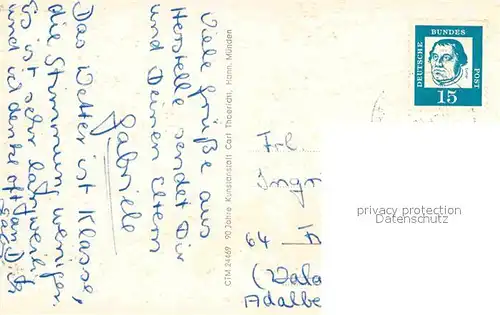 Viele Grüße aus
Herstelle sendet Dir
und Deinen Eltern
Gabriele
Das Wetter ist Klasse,
die Stimmung weniger.
Es ist sehr langweilig
und ich denke oft an Dich
Gabi
CTM 24469 90 Jahre Kunstanstalt Carl Thoericht, Hann. Münden
DEUTSCHE
BUNDES
POST
15
Frl.
Ingri
64 F
Adalbe
privacy protection
Datenschutz